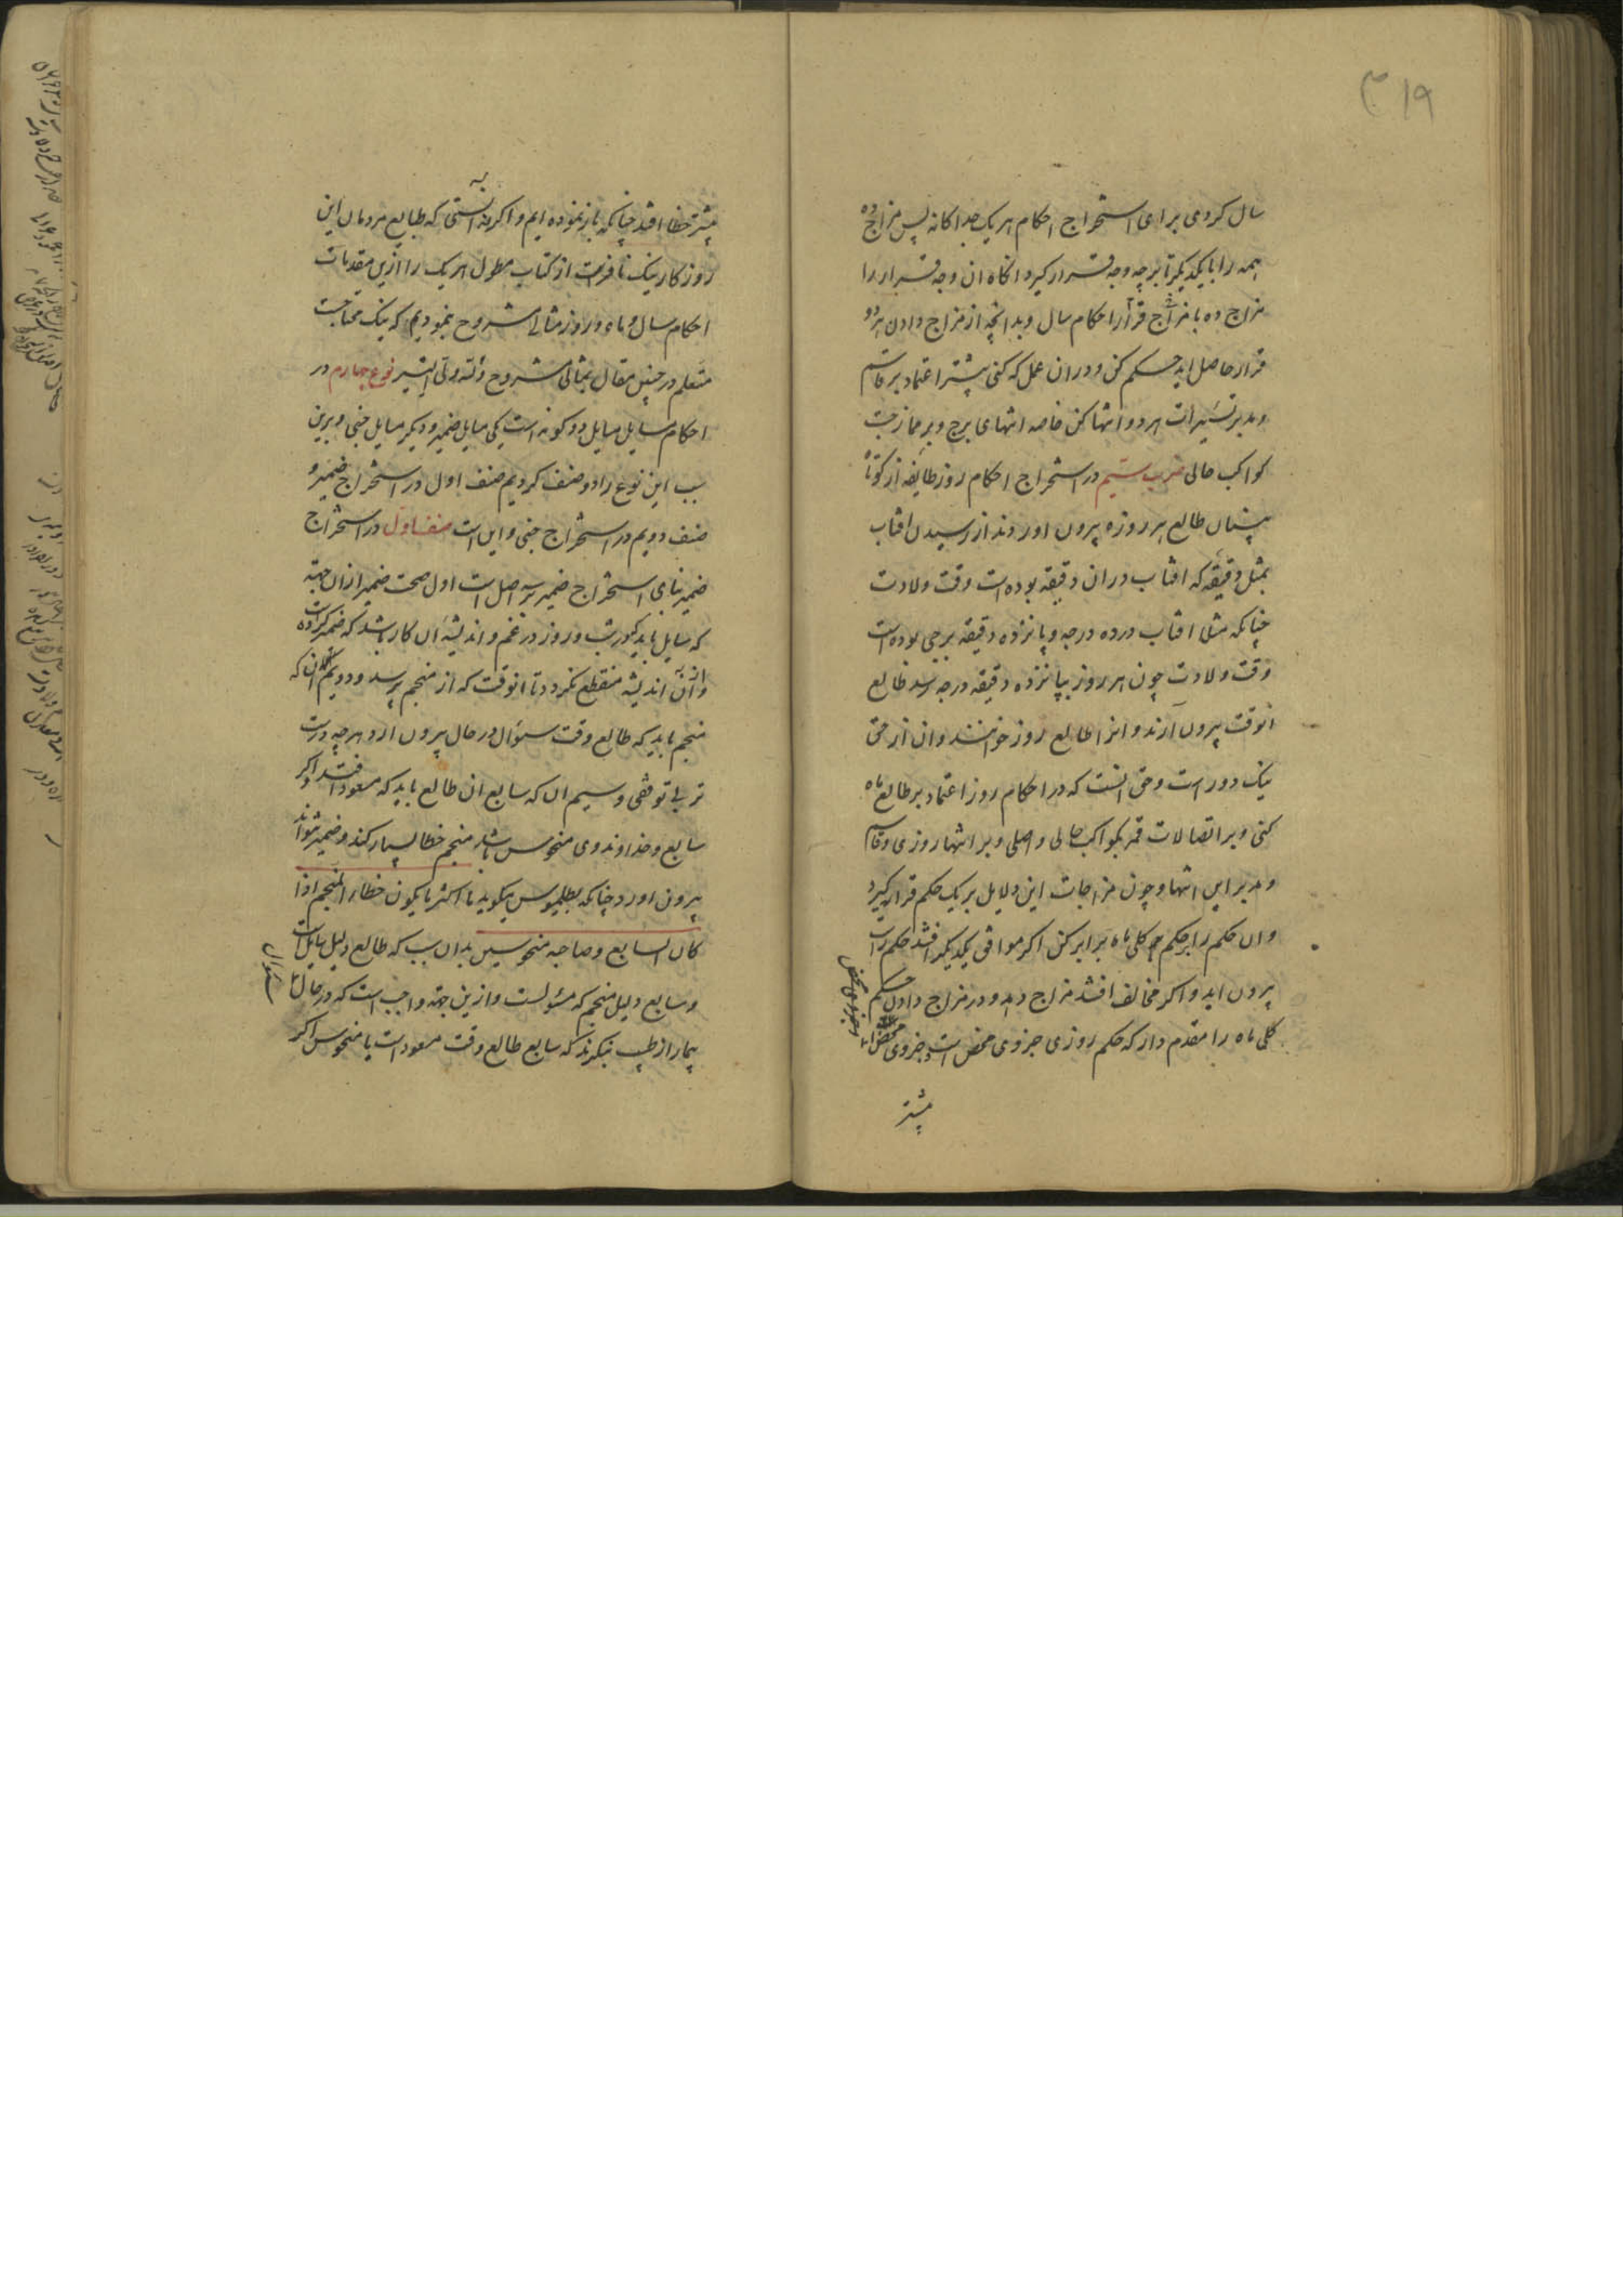 ۳۱۹
سال کردی برای استخراج احکام هر یک جداکانه پس مزاج ده
همه را با یکدیکر تا بر چه وجه قرار کیرد انکاه ان وجه قرار را
مزاج ده با مزاج قرار احکام سال و بدانچه از مزاج دادن هر دو
قرار حاصل اید حکم کن و دران عمل که کنی پیشتر اعتماد بر قاسم
و مدبر تسییرات هر دو انتها کن خاصه انتهای برج و بر ممازجت
کواکب حالی ضرب سیم در استخراج احکام روز طایفه از کوتاه
بینان طالع هر روزه بیرون اورند از رسیدن افتاب
بمثل دقیقه که افتاب دران دقیقه بوده است وقت ولادت
چنانکه مثلی افتاب در ده درجه و پانزده دقیقه برجی بوده است
وقت ولادت چون هر روز بپانزده دقیقه درجه رسد طالع
انوقت بیرون آرند و انرا طالع روز خوانند و ان از حق
نیک دور است و حق انست که در احکام روز اعتماد بر طالع ماه
کنی و بر اتصالات قمر بکواکب حالی و اصلی و بر انتها روزی و قاسم
و مدبر این انتها و چون مزاجات این دلایل بر یک حکم قرار کیرد
و ان حکم را بر حکم کلی ماه برابر کن اکر موافق یکدیکر افتد حکم راست
بیرون اید و اکر مخالف افتد مزاج دهد و در مزاج دادن حکم
کلی ماه را مقدم دار که حکم روزی جزوی محض است و جزوی محض را
و جزوی محض
بیشتر
بیشتر خطا افتد چنانکه باز نموده ایم و اکر نه انستی که طبایع مردمان این
روزکار نیک نافرست از کتاب مطول هر یک را ازین مقدمات
احکام سال و ماه و روز مثالی مشروح بنمودیم که نیک محتاجست
متعلم در چنین مقال بمثالی مشروح والله ولی التیسیر نوع چهارم در
احکام مسایل مسایل دو کونه است یکی مسایل ضمیر و دیکر مسایل خبی و برین
سبب این نوع را دو صنف کردیم صنف اول در استخراج ضمیر و
صنف دویم در استخراج خبی و این است صنف اول در استخراج
ضمیر بنای استخراج ضمیر بر سه اصل است اول صحت ضمیر ازان جهة
که سایل باید که در شب و روز در غم و اندیشه ان کار باشد که ضمیر کرده است
و ان اندیشه منقطع نکردد تا انوقت که از منجم پرسد و دویم انکه
منجم باید که طالع وقت سؤال در حال بیرون ارد هرچه درست
تر بی توقفی و سیم ان که سابع ان طالع باید که مسعود افتد و اکر
سابع و خداوند وی منحوس باشد منجم خطا بسیار کند و ضمیر نتواند
بیرون اورد چنانکه بطلمیوس میکوید ما اکثر ما یکون خطاء المنجم اذا
کان السابع و صاحبه منحوسین بدان سبب که طالع دلیل سایل است
و سابع دلیل منجم که مسئولست و ازین جهة واجب است که در حال
سؤال
بیمار از طبیب بنکرند که سابع طالع وقت مسعود است یا منحوس اکر